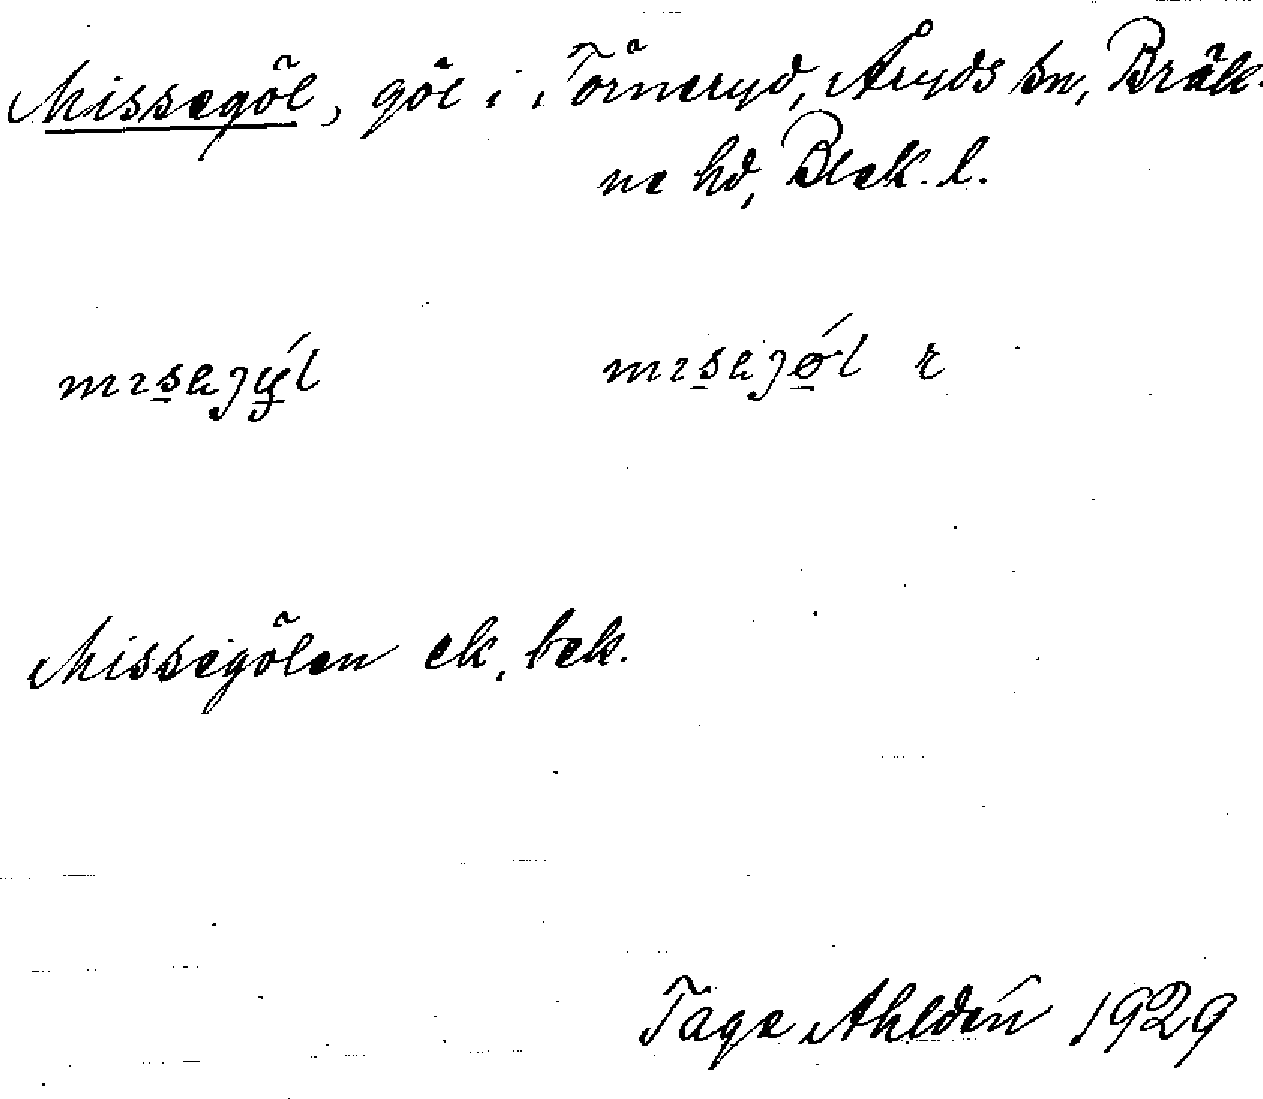 Missegöl, göl i Törneryd, Åryds sn, Bräk-
ne hd, Blek. l.
mɪsejý̱l mɪsejǿ̱l r
Missegölen ek. bek.
Tage Ahldén 1929